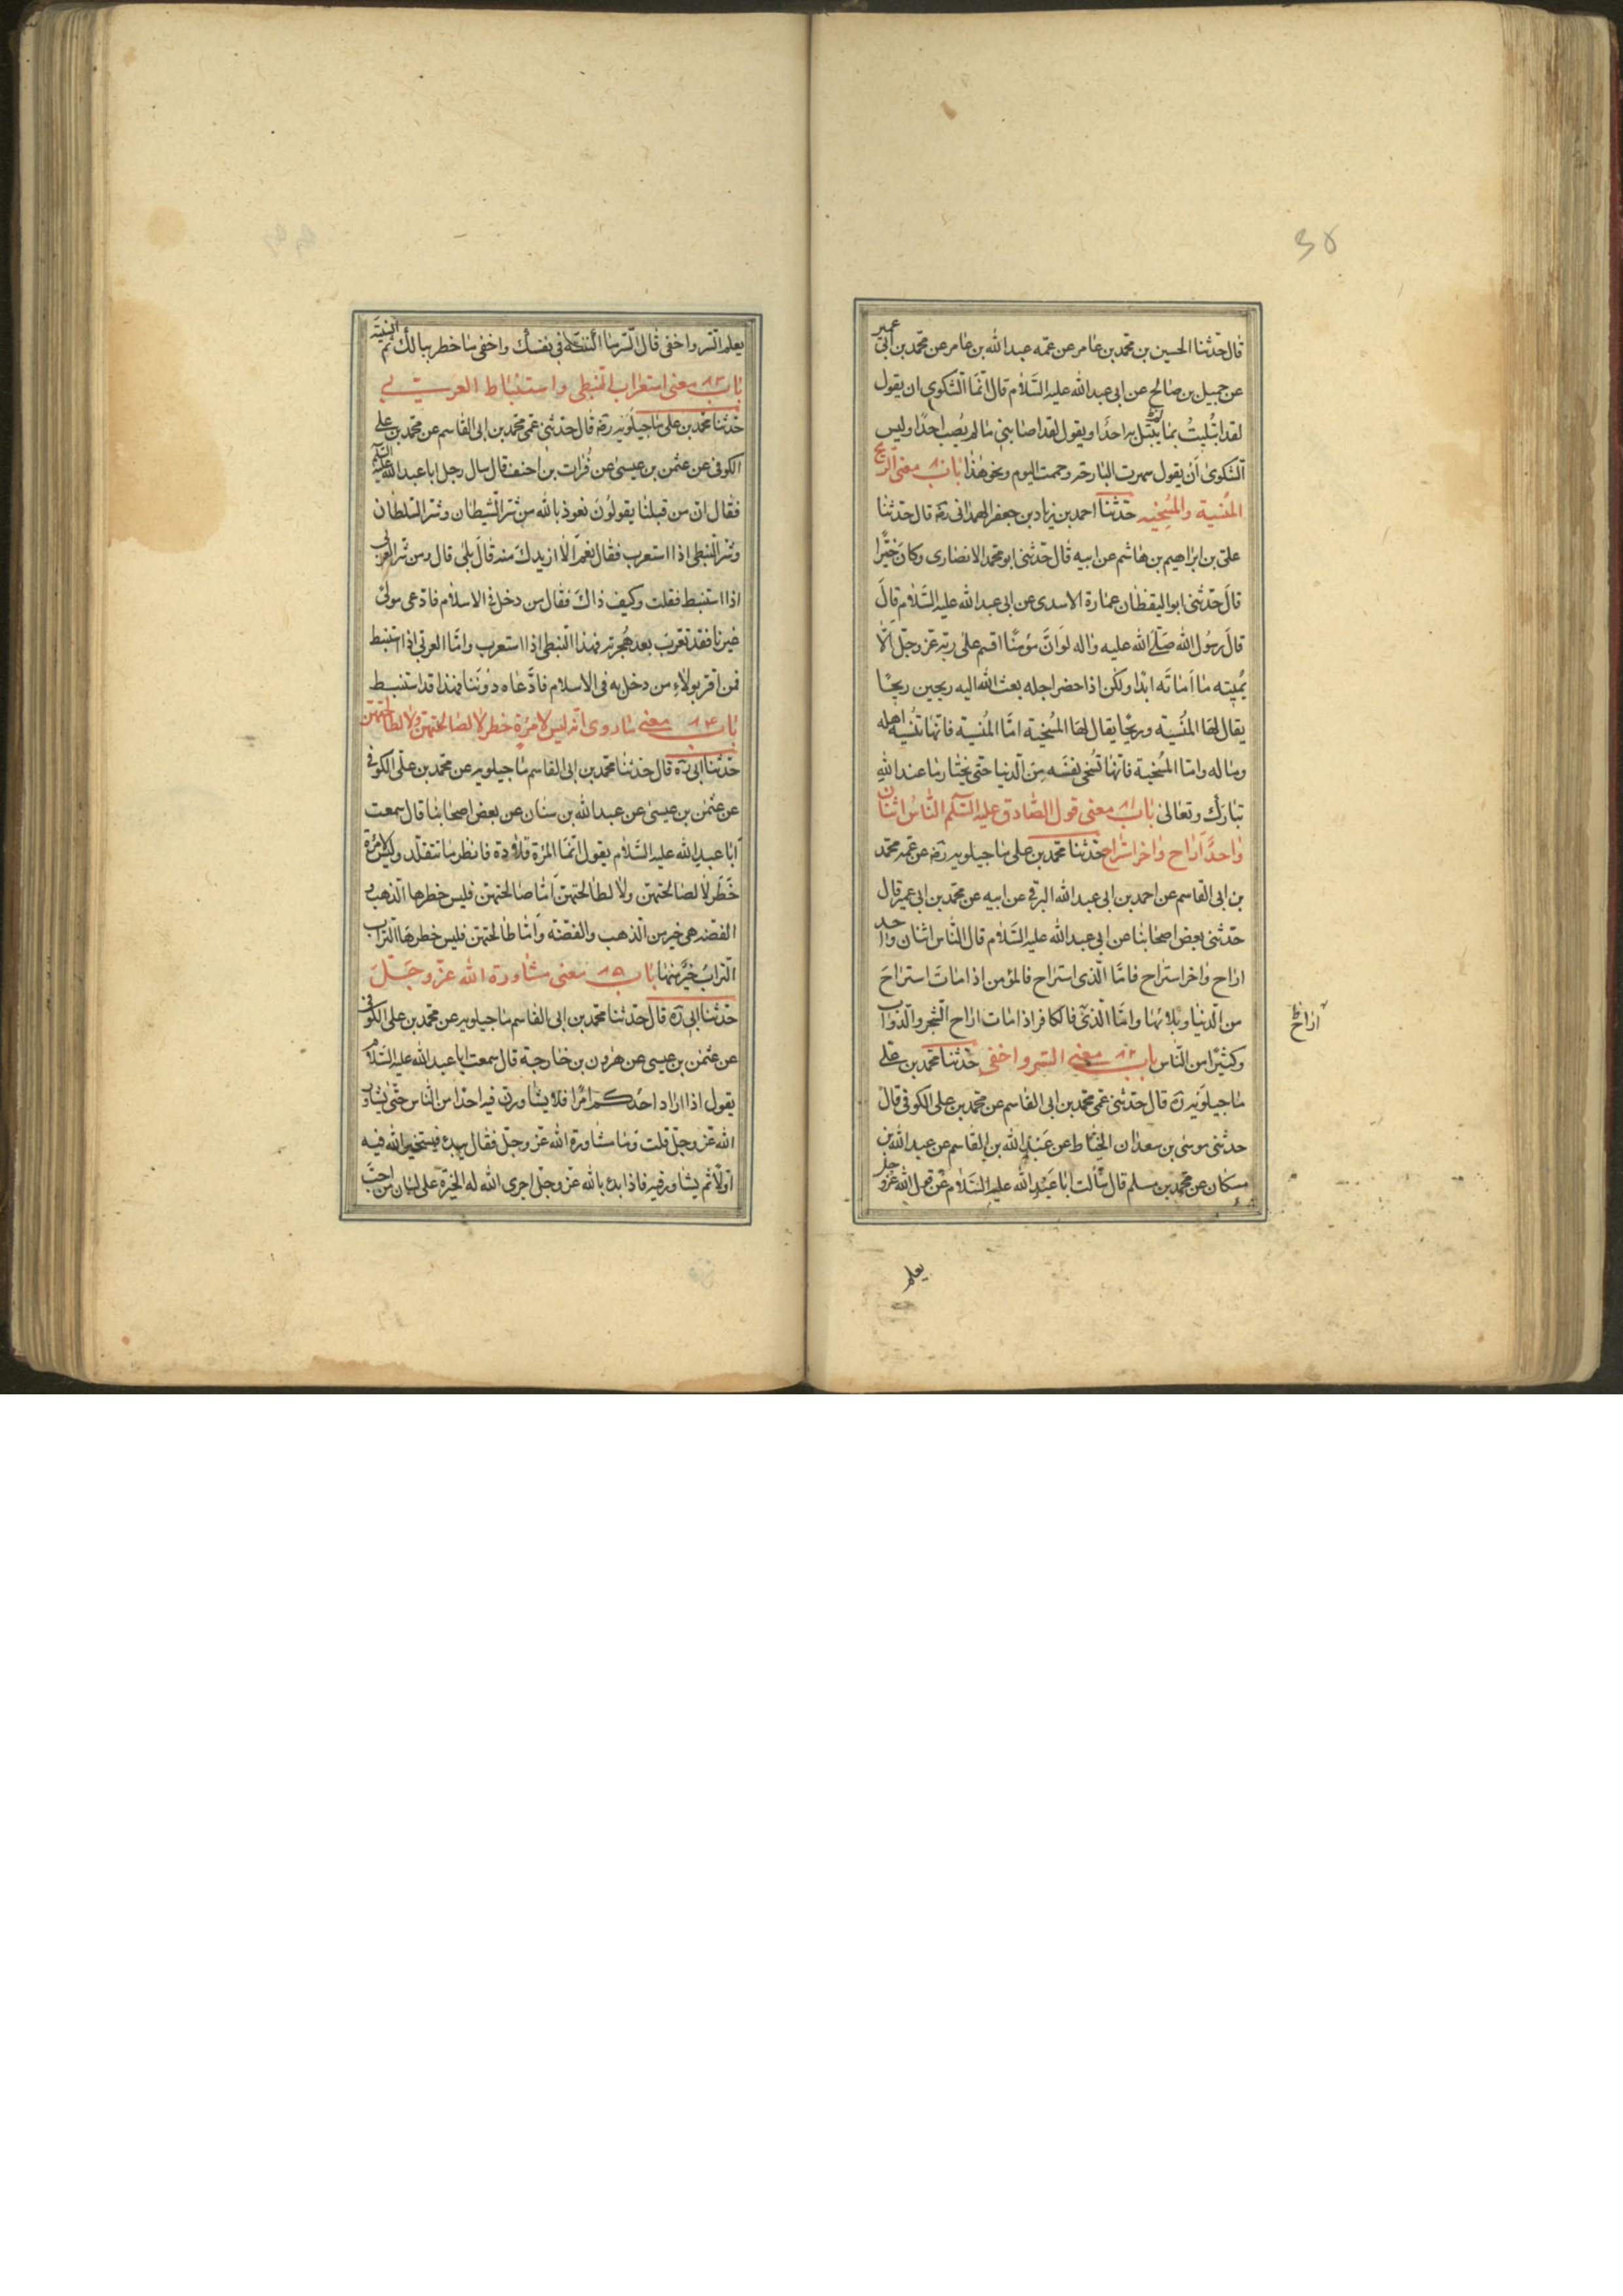 قال حدثنا الحسين بن محمد بن عامر عن عمه عبد الله بن عامر عن محمد بن ابى عمير
عن جميل بن صالح عن ابى عبد الله عليه السلام قال انما الشكوى ان يقول
لقد ابتليت بما لم يبتل به احد او يقول لقد اصابنى ما لم يصب احدا وليس
الشكوى أن يقول سهرت البارحه وحممت اليوم ونحو هذا باب ٨٠ معنى الريح
المنسية والمسخيه حدثنا احمد بن زياد بن جعفر الهمدانى رضه قال حدثنا
على بن ابراهيم بن هاشم عن ابيه قال حدثنى ابو محمد الانصارى وكان خيرا
قال حدثنى ابو اليقظان عمارة الاسدى عن ابى عبد الله عليه السلام قال
قال رسول الله صلى الله عليه واله لو ان مؤمنا اقسم على ربه عز وجل الا
يميته ما اماته ابدا ولكن اذا حضر اجله بعث الله اليه ريحين ريحا
يقال لها المنسية وريحا يقال لها المسخية امّا المنسية فانها تنسيه اهله
وماله واما المسخية فانها تسخى نفسه من الدنيا حتى يختار ما عند الله
تبارك وتعالى باب ٨١ معنى قول الصادق عليه السلم الناس اثنان
واحد اراح واخر استراح حدثنا محمد بن على ماجيلويه رضه عن عمه محمد
بن ابى القاسم عن احمد بن ابى عبد الله البرقى عن ابيه عن محمد بن ابى عمير قال
حدثنى بعض اصحابنا عن ابى عبد الله عليه السلام قال الناس اثنان واحد
اراح واخر استراح فامّا الذى استراح فالمؤمن اذا مات استراح
من الدنيا وبلائها وامّا الذى فالكافر اذا مات اراح الشجر والدواب
اراح
وكثيرا من الناس باب ٨٢ معنى السر واخفى حدثنا محمد بن على
ماجيلويه رة قال حدثنى عمى محمد بن ابى القاسم عن محمد بن على الكوفى قال
حدثنى موسى بن سعدان الحناط عن عبد الله بن القاسم عن عبد الله بن
مسكان عن محمد بن مسلم قال سألت ابا عبد الله عليه السلام عن قول الله عز وجل
يعلم
يعلم السر واخفى قال السر ما اكننته فى نفسك واخفى ما خطر ببالك ثم انسيته
باب ٨٣ معنى استعراب النبطى واستنباط العربى
حدثنا محمد بن على ماجيلويه رضه قال حدثنى عمى محمد بن ابى القاسم عن محمد بن على
الكوفى عن عثمن بن عيسى عن فرات بن احنف قال سال رجل ابا عبد الله عليه السلم
فقال ان من قبلنا يقولون نعوذ بالله من شر الشيطان وشر السلطان
وشر النبطى اذا استعرب فقال نعم الا ازيدك منه قال بلى قال ومن شر العربى
اذا استنبط فقلت وكيف ذاك فقال من دخل فى الاسلام فادعى مولى
غيرنا فقد تعرب بعد هجرته فهذا النبطى اذا استعرب وامّا العربى اذا استنبط
فمن اقر بولاء من دخل به فى الاسلام فادعاه دوننا فهذا قد استنبط
باب ٨٤ معنى ما روى انه ليس لامرة خطر لا لصالحتهن ولا لطالحتهن
حدثنا ابى رة قال حدثنا محمد بن ابى القاسم ماجيلويه عن محمد بن على الكوفى
عن عثمن بن عيسى عن عبد الله بن سنان عن بعض اصحابنا قال سمعت
ابا عبد الله عليه السلام يقول انما المرة قلادة فانظر ما تتقلد وليس لامرة
خطر لا لصالحتهن ولا لطالحتهن اما صالحتهن فليس خطرها الذهب و
الفضه هى خير من الذهب والفضة وامّا طالحتهن فليس خطرها التراب
التراب خير منها باب ٨٥ معنى مشاورة الله عز وجل
حدثنا ابى رة قال حدثنا محمد بن ابى القاسم ماجيلويه عن محمد بن على الكوفى
عن عثمن بن عيسى عن هرون بن خارجة قال سمعت ابا عبد الله عليه السلام
يقول اذا اراد احدكم امرا فلا يشاورن فيه احدا من الناس حتى يشاور
الله عز وجل قلت وما مشاورة الله عز وجل فقال يبدء فيستخير الله فيه
اولا ثم يشاور فيه فاذا بدء بالله عز وجل اجرى الله له الخيرة على لسان من احب